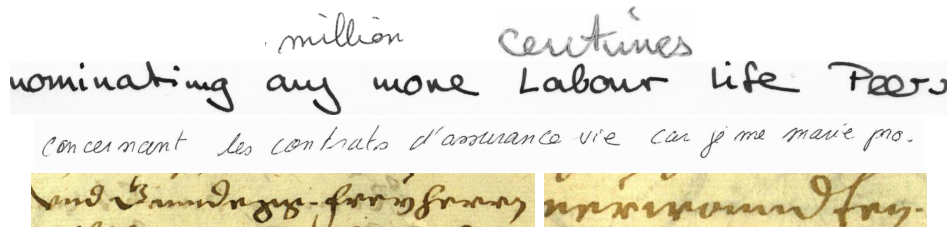 million
nominating any more Labour life Peers
concernant les contrats d'assurance vie car je me marie pro.
vnd freyherrn